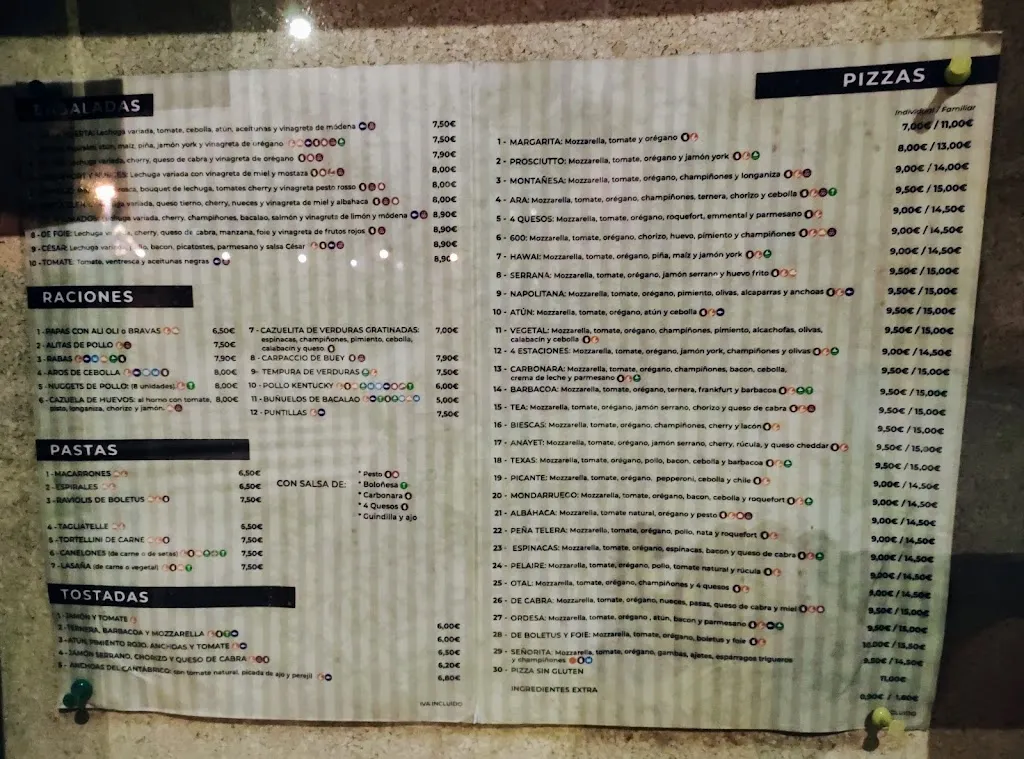 ENSALADAS
Lechuga variada, tomate, cebolla, atún, aceitunas y vinagreta de módena 7,50€
maíz, piña, jamón york y vinagreta de orégano 7,50€
Lechuga variada, cherry, queso de cabra y vinagreta de orégano 7,90€
Lechuga variada con vinagreta de miel y mostaza 8,00€
bouquet de lechuga, tomates cherry y vinagreta pesto rosso 8,00€
variada, queso tierno, cherry, nueces y vinagreta de miel y albahaca 8,00€
Lechuga variada, cherry, champiñones, bacalao, salmón y vinagreta de limón y módena 8,90€
8 - DE FOIE: Lechuga variada, cherry, queso de cabra, manzana, foie y vinagreta de frutos rojos 8,90€
9 - CÉSAR: Lechuga variada, pollo, bacon, picatostes, parmesano y salsa César 8,90€
10 - TOMATE: Tomate, ventresca y aceitunas negras 8,90€
RACIONES
1 - PAPAS CON ALI OLI o BRAVAS 6,50€
2 - ALITAS DE POLLO 7,50€
3 - RABAS 7,90€
4 - AROS DE CEBOLLA 8,00€
5 - NUGGETS DE POLLO: (8 unidades) 8,00€
6 - CAZUELA DE HUEVOS: al horno con tomate, 8,00€
pisto, longaniza, chorizo y jamón.
7 - CAZUELITA DE VERDURAS GRATINADAS: 7,00€
espinacas, champiñones, pimiento, cebolla,
calabacín y queso.
8 - CARPACCIO DE BUEY 7,90€
9 - TEMPURA DE VERDURAS 7,50€
10 - POLLO KENTUCKY 6,00€
11 - BUÑUELOS DE BACALAO 5,00€
12 - PUNTILLAS 7,50€
PASTAS
1 - MACARRONES 6,50€
2 - ESPIRALES 6,50€
3 - RAVIOLIS DE BOLETUS 7,50€
4 - TAGLIATELLE 6,50€
5 - TORTELLINI DE CARNE 7,50€
6 - CANELONES (de carne o de setas) 7,50€
7 - LASAÑA (de carne o vegetal) 7,50€
CON SALSA DE:
* Pesto
* Boloñesa
* Carbonara
* 4 Quesos
* Guindilla y ajo
TOSTADAS
1 - JAMÓN Y TOMATE 6,00€
2 - TERNERA, BARBACOA Y MOZZARELLA 6,00€
3 - ATÚN, PIMIENTO ROJO, ANCHOAS Y TOMATE 6,50€
4 - JAMÓN SERRANO, CHORIZO Y QUESO DE CABRA 6,20€
5 - ANCHOAS DEL CANTÁBRICO: con tomate natural, picada de ajo y perejil 6,80€
IVA INCLUIDO
PIZZAS
Individual / Familiar
1 - MARGARITA: Mozzarella, tomate y orégano 7,00€ / 11,00€
2 - PROSCIUTTO: Mozzarella, tomate, orégano y jamón york 8,00€ / 13,00€
3 - MONTAÑESA: Mozzarella, tomate, orégano, champiñones y longaniza 9,00€ / 14,00€
4 - ARA: Mozzarella, tomate, orégano, champiñones, ternera, chorizo y cebolla 9,50€ / 15,00€
5 - 4 QUESOS: Mozzarella, tomate, orégano, roquefort, emmental y parmesano 9,00€ / 14,50€
6 - 600: Mozzarella, tomate, orégano, chorizo, huevo, pimiento y champiñones 9,00€ / 14,50€
7 - HAWAI: Mozzarella, tomate, orégano, piña, maíz y jamón york 9,00€ / 14,50€
8 - SERRANA: Mozzarella, tomate, orégano, jamón serrano y huevo frito 9,50€ / 15,00€
9 - NAPOLITANA: Mozzarella, tomate, orégano, pimiento, olivas, alcaparras y anchoas 9,50€ / 15,00€
10 - ATÚN: Mozzarella, tomate, orégano, atún y cebolla 9,50€ / 15,00€
11 - VEGETAL: Mozzarella, tomate, orégano, champiñones, pimiento, alcachofas, olivas, 9,50€ / 15,00€
calabacín y cebolla
12 - 4 ESTACIONES: Mozzarella, tomate, orégano, jamón york, champiñones y olivas 9,00€ / 14,50€
13 - CARBONARA: Mozzarella, tomate, orégano, champiñones, bacon, cebolla, 9,50€ / 15,00€
crema de leche y parmesano
14 - BARBACOA: Mozzarella, tomate, orégano, ternera, frankfurt y barbacoa 9,50€ / 15,00€
15 - TEA: Mozzarella, tomate, orégano, jamón serrano, chorizo y queso de cabra 9,50€ / 15,00€
16 - BIESCAS: Mozzarella, tomate, orégano, champiñones, cherry y lacón 9,50€ / 15,00€
17 - ANAYET: Mozzarella, tomate, orégano, jamón serrano, cherry, rúcula, y queso cheddar 9,50€ / 15,00€
18 - TEXAS: Mozzarella, tomate, orégano, pollo, bacon, cebolla y barbacoa 9,50€ / 15,00€
19 - PICANTE: Mozzarella, tomate, orégano, pepperoni, cebolla y chile 9,00€ / 14,50€
20 - MONDARRUEGO: Mozzarella, tomate, orégano, bacon, cebolla y roquefort 9,00€ / 14,50€
21 - ALBÁHACA: Mozzarella, tomate natural, orégano y pesto 9,00€ / 14,50€
22 - PEÑA TELERA: Mozzarella, tomate, orégano, pollo, nata y roquefort 9,00€ / 14,50€
23 - ESPINACAS: Mozzarella, tomate, orégano, espinacas, bacon y queso de cabra 9,00€ / 14,50€
24 - PELAIRE: Mozzarella, tomate, orégano, pollo, tomate natural y rúcula 9,00€ / 14,50€
25 - OTAL: Mozzarella, tomate, orégano, champiñones y 4 quesos 9,00€ / 14,50€
26 - DE CABRA: Mozzarella, tomate, orégano, nueces, pasas, queso de cabra y miel 9,50€ / 15,00€
27 - ORDESA: Mozzarella, tomate, orégano, atún, bacon y parmesano 9,50€ / 15,00€
28 - DE BOLETUS Y FOIE: Mozzarella, tomate, orégano, boletus y foie 10,00€ / 15,50€
29 - SEÑORITA: Mozzarella, tomate, orégano, gambas, ajetes, espárragos trigueros 9,50€ / 14,50€
y champiñones
30 - PIZZA SIN GLUTEN 11,00€
INGREDIENTES EXTRA 0,90€ / 1,80€